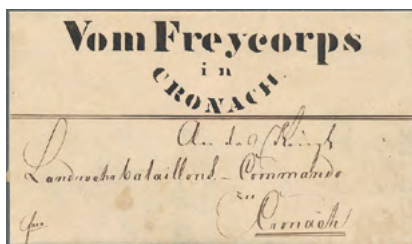 Vom Freycorps
in
CRONACH.
An das Königl
Landwehrbataillons-Commando
zu
Cronach